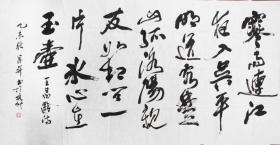 寒雨連江
夜入吴平
明送客楚
山孤洛陽親
友如相问一
片冰心在
玉壶 王昌齡诗
乙未秋